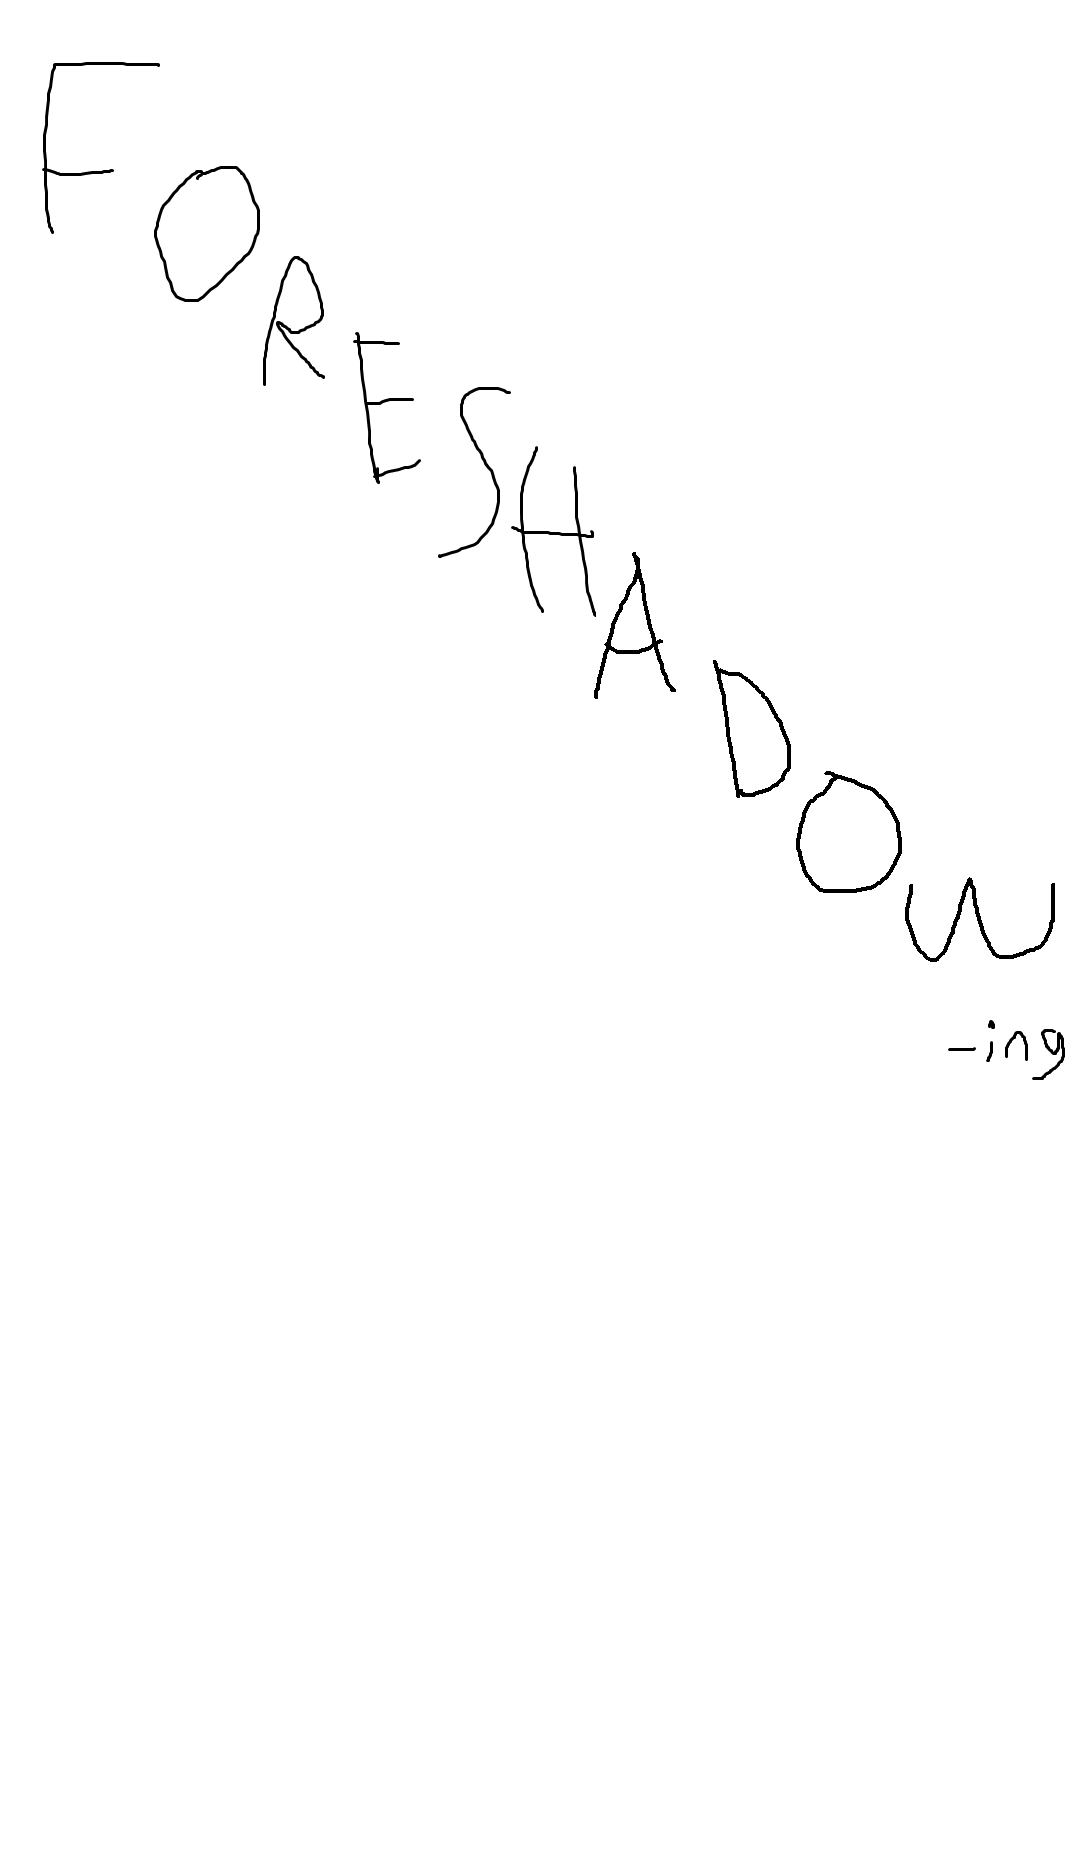 FORESHADOW
-ing